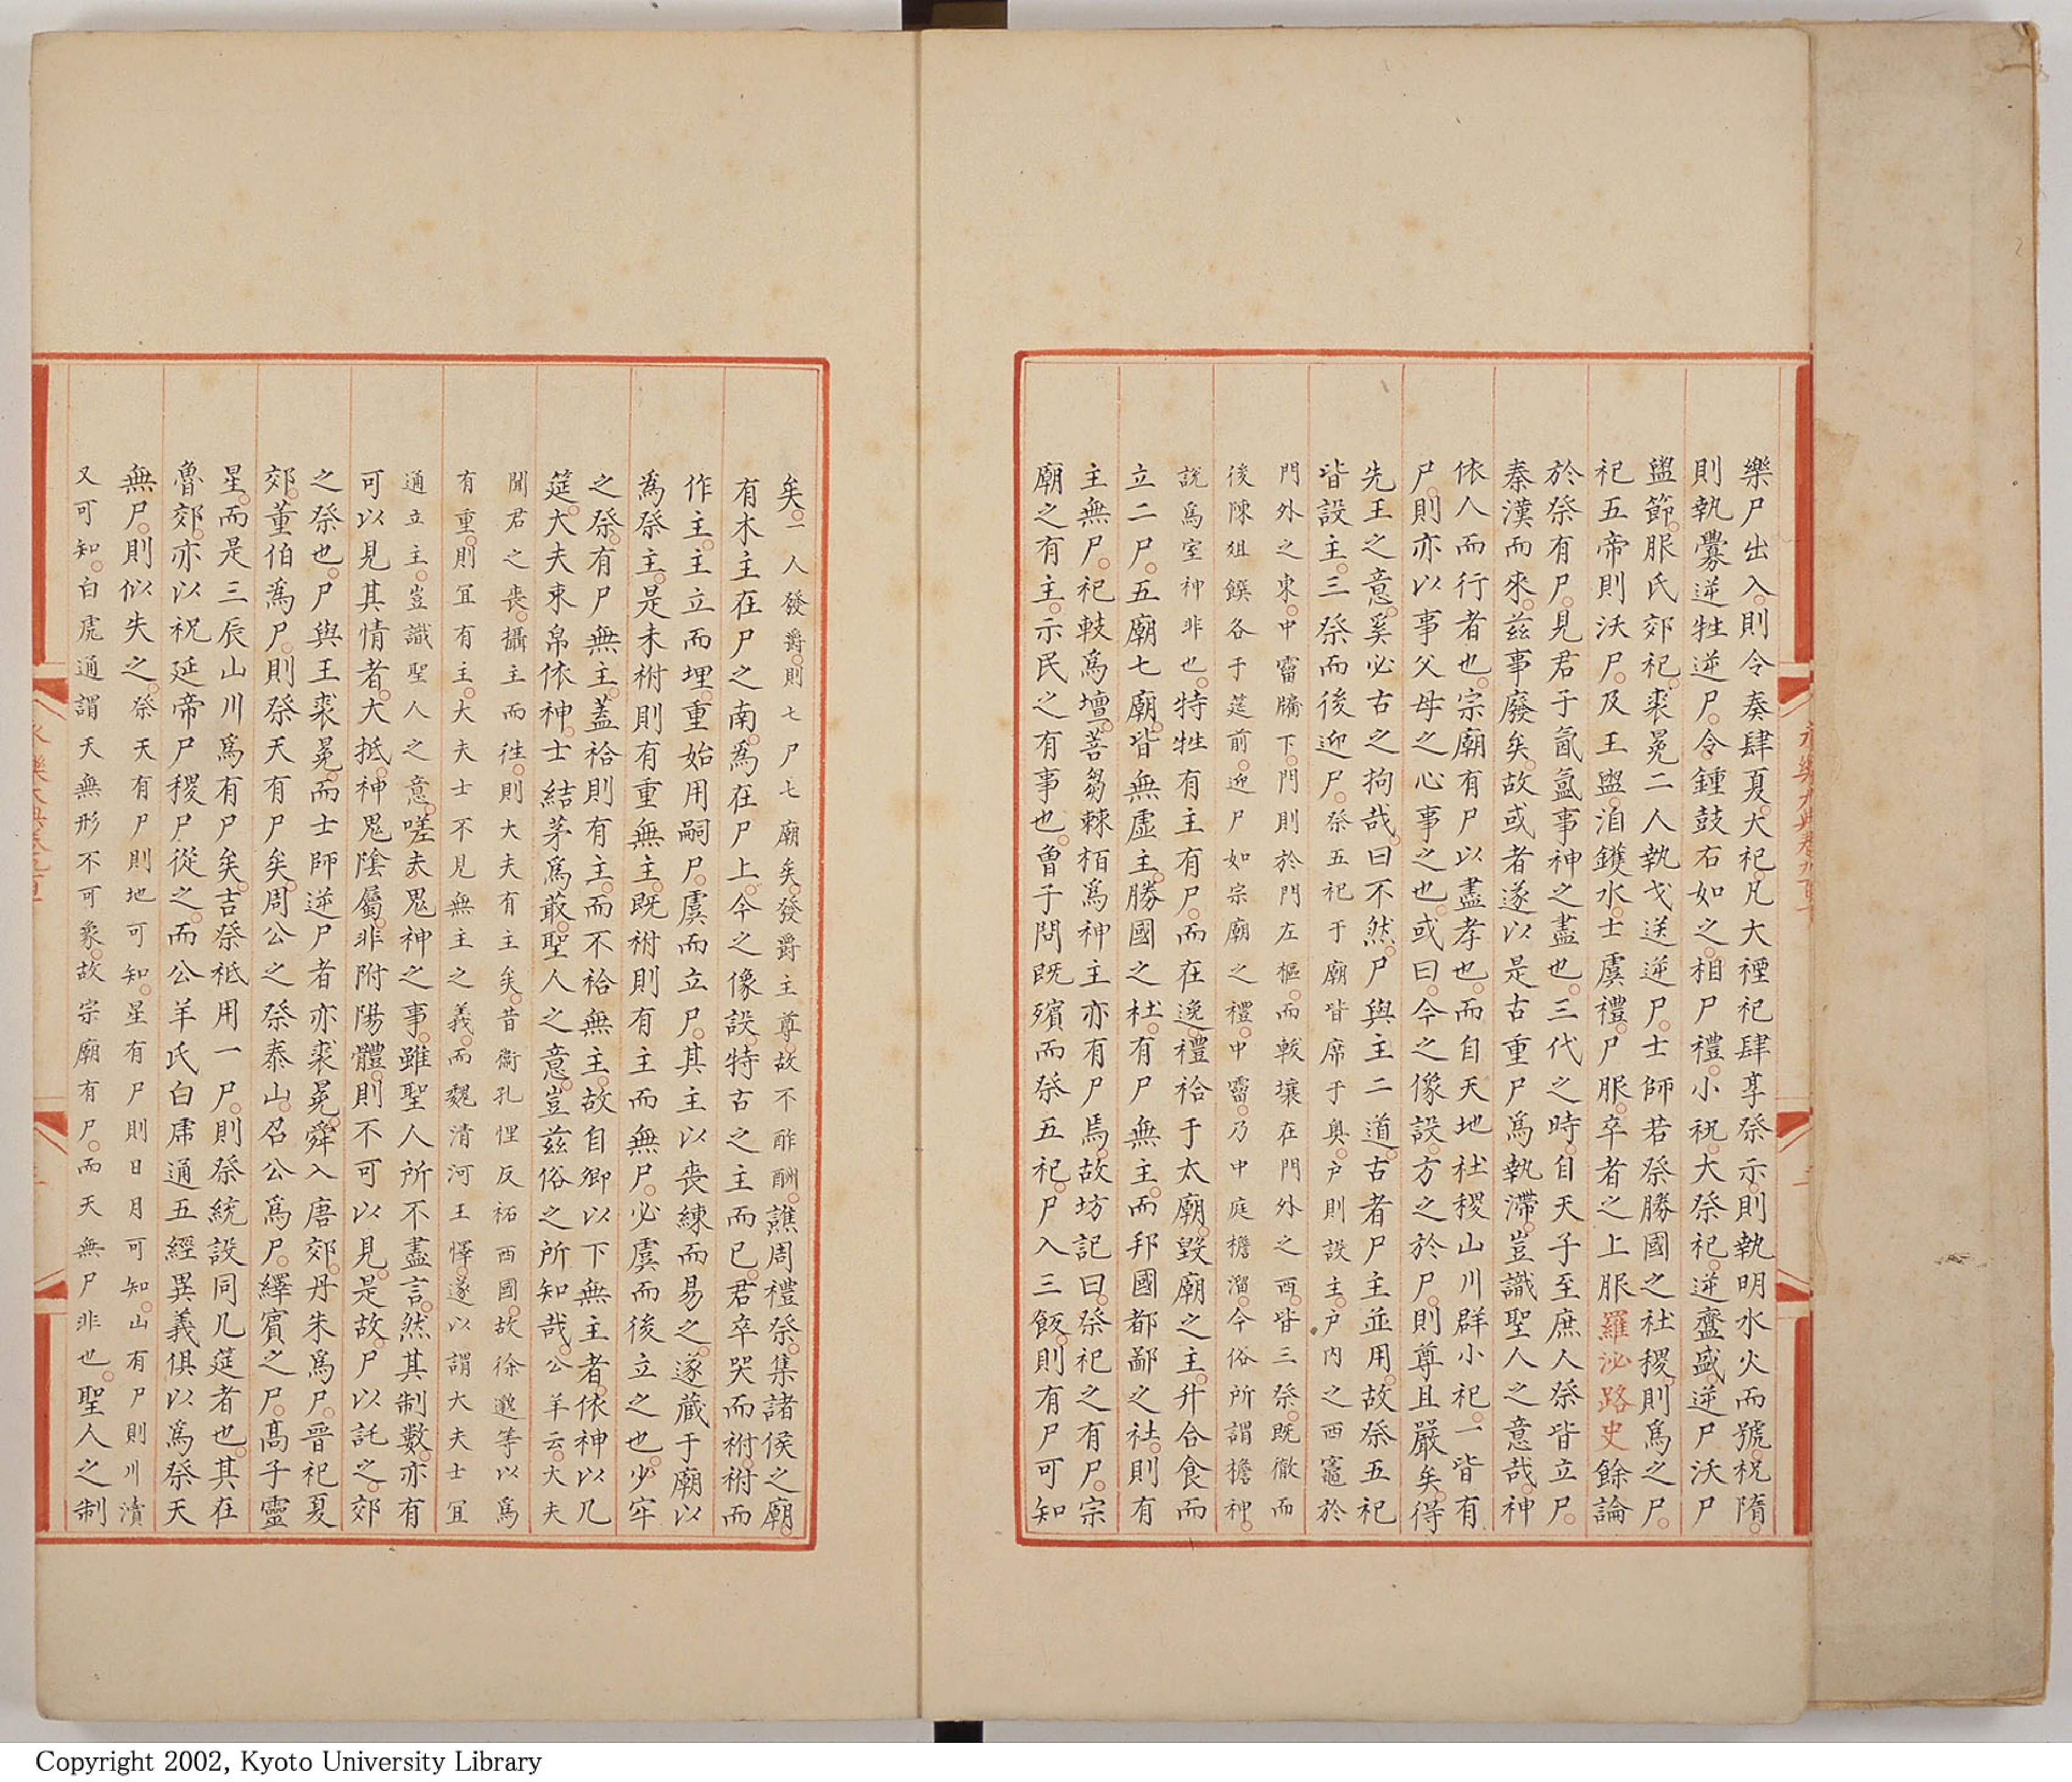 樂尸出入。則令奏肆夏。大祀。凡大禋祀肆享祭示。則執明水火而號祝隋。
則執釁逆牲逆尸。令鍾鼓右如之。相尸禮。小祝。大祭祀。逆齍盛。逆尸沃尸
盥。節服氏郊祀。裘冕二人執戈送逆尸。士師若祭勝國之社稷。則爲之尸。
祀五帝則沃尸。及王盥。洎鑊水。士虞禮。尸服。卒者之上服羅泌路史餘論
於祭有尸。見君子氤氳事神之盡也。三代之時。自天子至庶人祭皆立尸。
秦漢而來。茲事廢矣。故或者遂以是古重尸爲執滯。豈識聖人之意哉。神
依人而行者也。宗廟有尸以盡孝也。而自天地社稷山川群小祀。一皆有
尸。則亦以事父母之心事之也。或曰。今之像設。方之於尸。則尊且嚴矣。得
先王之意。奚必古之拘哉。曰不然。尸與主二道。古者尸主並用。故祭五祀
皆設主。三祭而後迎尸。祭五祀于廟皆席于奧。戶則設主。戶內之西竈於
門外之東。中霤牖下。門則於門左樞。而軷壤在門外之西。皆三祭。既徹而
後陳俎饌各于筵前。迎尸如宗廟之禮。中霤。乃中庭檐溜。今俗所謂檐神。
說爲室神非也。特牲有主有尸。而在逸禮祫于太廟。毀廟之主。升合食而
立二尸。五廟七廟。皆無虛主。勝國之社。有尸無主。而邦國都鄙之社。則有
主無尸。祀軷爲壇。菩芻棘栢爲神主亦有尸焉。故坊記曰。祭祀之有尸。宗
廟之有主。示民之有事也。曾子問既殯而祭五祀。尸入三飯。則有尸可知
矣。一人發爵。則七尸七廟矣。發爵主尊故不酢酬。譙周禮祭。集諸侯之廟。
有木主在尸之南。爲在尸上。今之像設。特古之主而已。君卒哭而祔。祔而
作主。主立而埋。重始用嗣尸。虞而立尸。其主以喪練而易之。遂藏于廟以
爲祭主。是未祔則有重無主。既祔則有主而無尸。必虞而後立之也。少牢
之祭。有尸無主。蓋祫則有主。而不祫無主。故自卿以下無主者。依神以几
筵。大夫束帛依神。士結茅爲菆。聖人之意。豈茲俗之所知哉。公羊云。大夫
聞君之喪。攝主而往。則大夫有主矣。昔衛孔悝反祏西國。故徐邈等以爲
有重。則宜有主。大夫士不見無主之義。而魏清河王懌。遂以謂大夫士宜
通立主。豈識聖人之意。嗟夫。鬼神之事。雖聖人所不盡言。然其制數。亦有
可以見其情者。大抵。神鬼陰屬。非附陽體。則不可以見。是故。尸以託之。郊
之祭也。尸與王裘冕。而士師逆尸者亦裘冕。舜入唐郊。丹朱爲尸。晉祀夏
郊。董伯爲尸。則祭天有尸矣。周公之祭泰山。召公爲尸。繹賓之尸。高子靈
星。而是三辰山川爲有尸矣。吉祭祗用一尸。則祭統設同几筵者也。其在
魯郊。亦以祝延帝尸稷尸從之。而公羊氏白虎通五經異義俱以爲祭天
無尸。則似失之。祭天有尸則地可知。星有尸則日月可知。山有尸則川瀆
又可知。白虎通謂天無形不可象。故宗廟有尸。而天無尸非也。聖人之制
Copyright 2002, Kyoto University Library